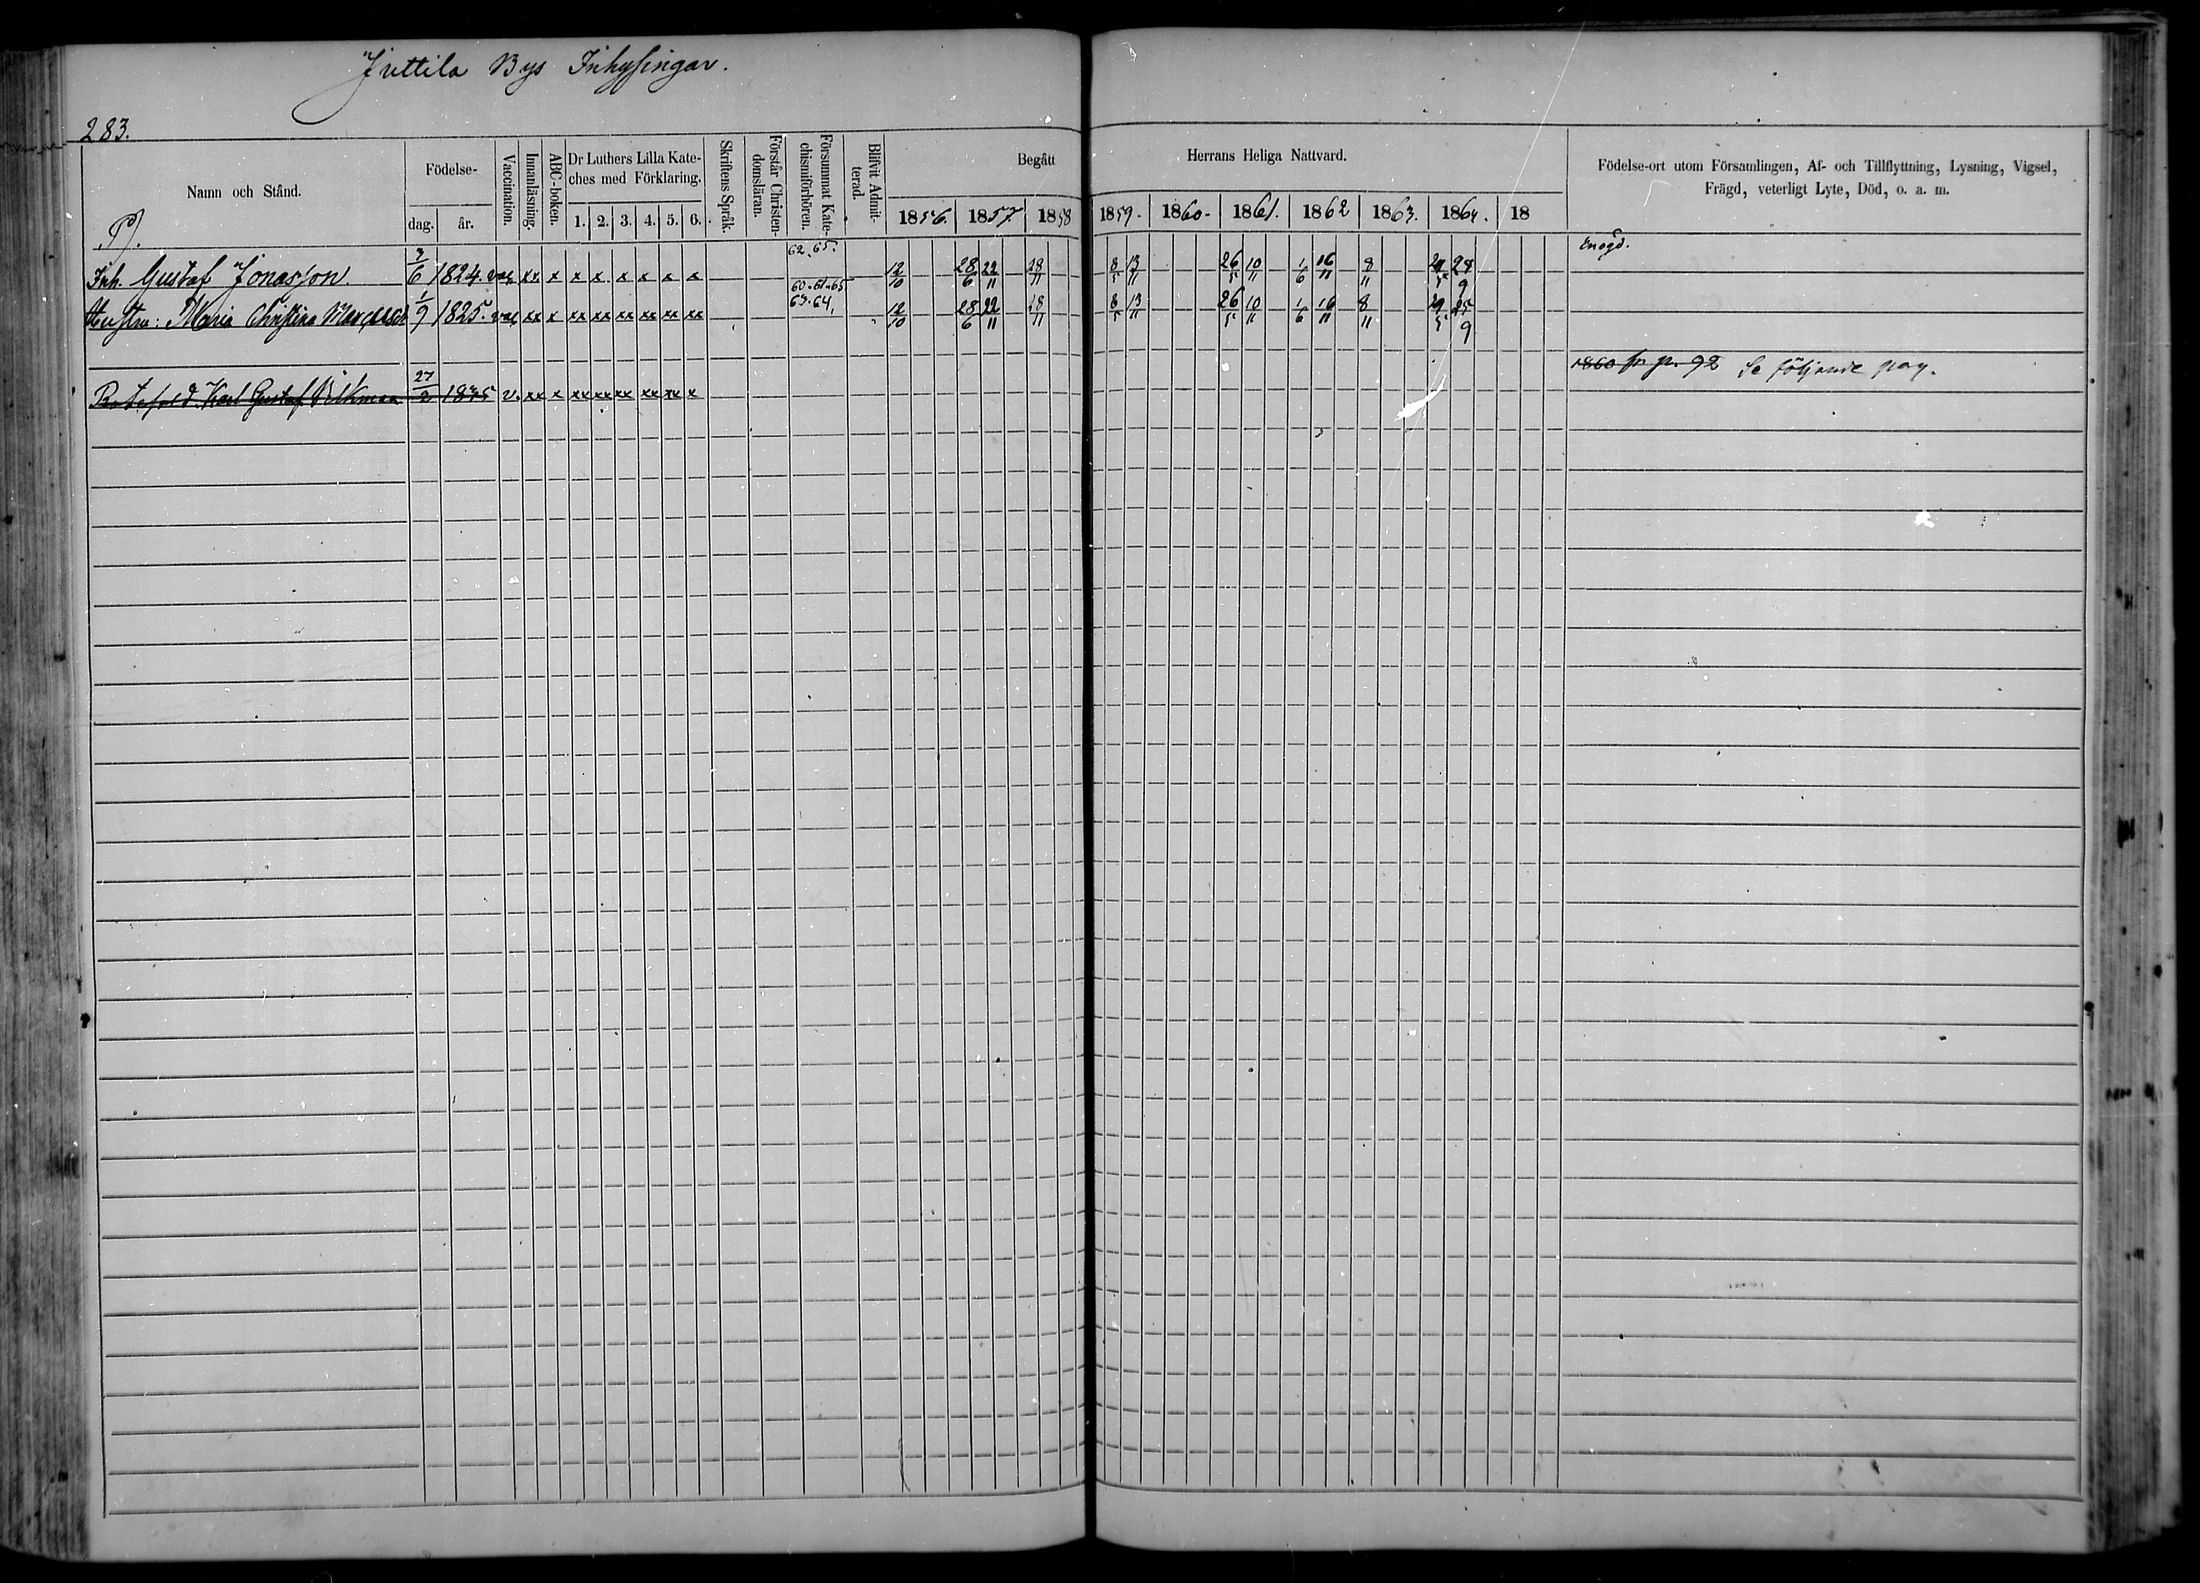 Juttila Bys Inhysingar.
283.
Namn och Stånd.
Födelse-
dag. år.
Vaccination.
Innanläsning.
ABC-boken.
Dr Luthers Lilla Kate-
ches med Förklaring.
1. 2. 3. 4. 5. 6.
Skriftens Språk.
Förstår Christen-
domsläran.
Försummat Kate-
chismiförhören.
Blifvit Admit-
terad.
Begått Herrans Heliga Nattvard.
1856. 1857. 1858 1859. 1860. 1861. 1862 1863. 1864. 18
Födelse-ort utom Församlingen, Af- och Tillflyttning, Lysning, Vigsel,
Frägd, veterligt Lyte, Död, o. a. m.
62. 65.
Inh. Gustaf Jonasson. 7/6 1824. vac. xx x x x x x x x 12/10 28/6 22/11 28/11 8/5 13/11 26/5 10/11 1/6 16/11 8/11
60. 61. 65
63. 64.
Hustru: Maria Christina 1/9 1825. vac xx x xx xx xx xx xx xx 12/10 28/6 22/11 28/11 8/5 13/11 26/5 10/11 1/6 16/11 8/11 29/5 25/9
Karl Gustaf 27/2 1835 v. xx x xx xx xx xx xx x 1860 fr p. 92 Se följande pag.